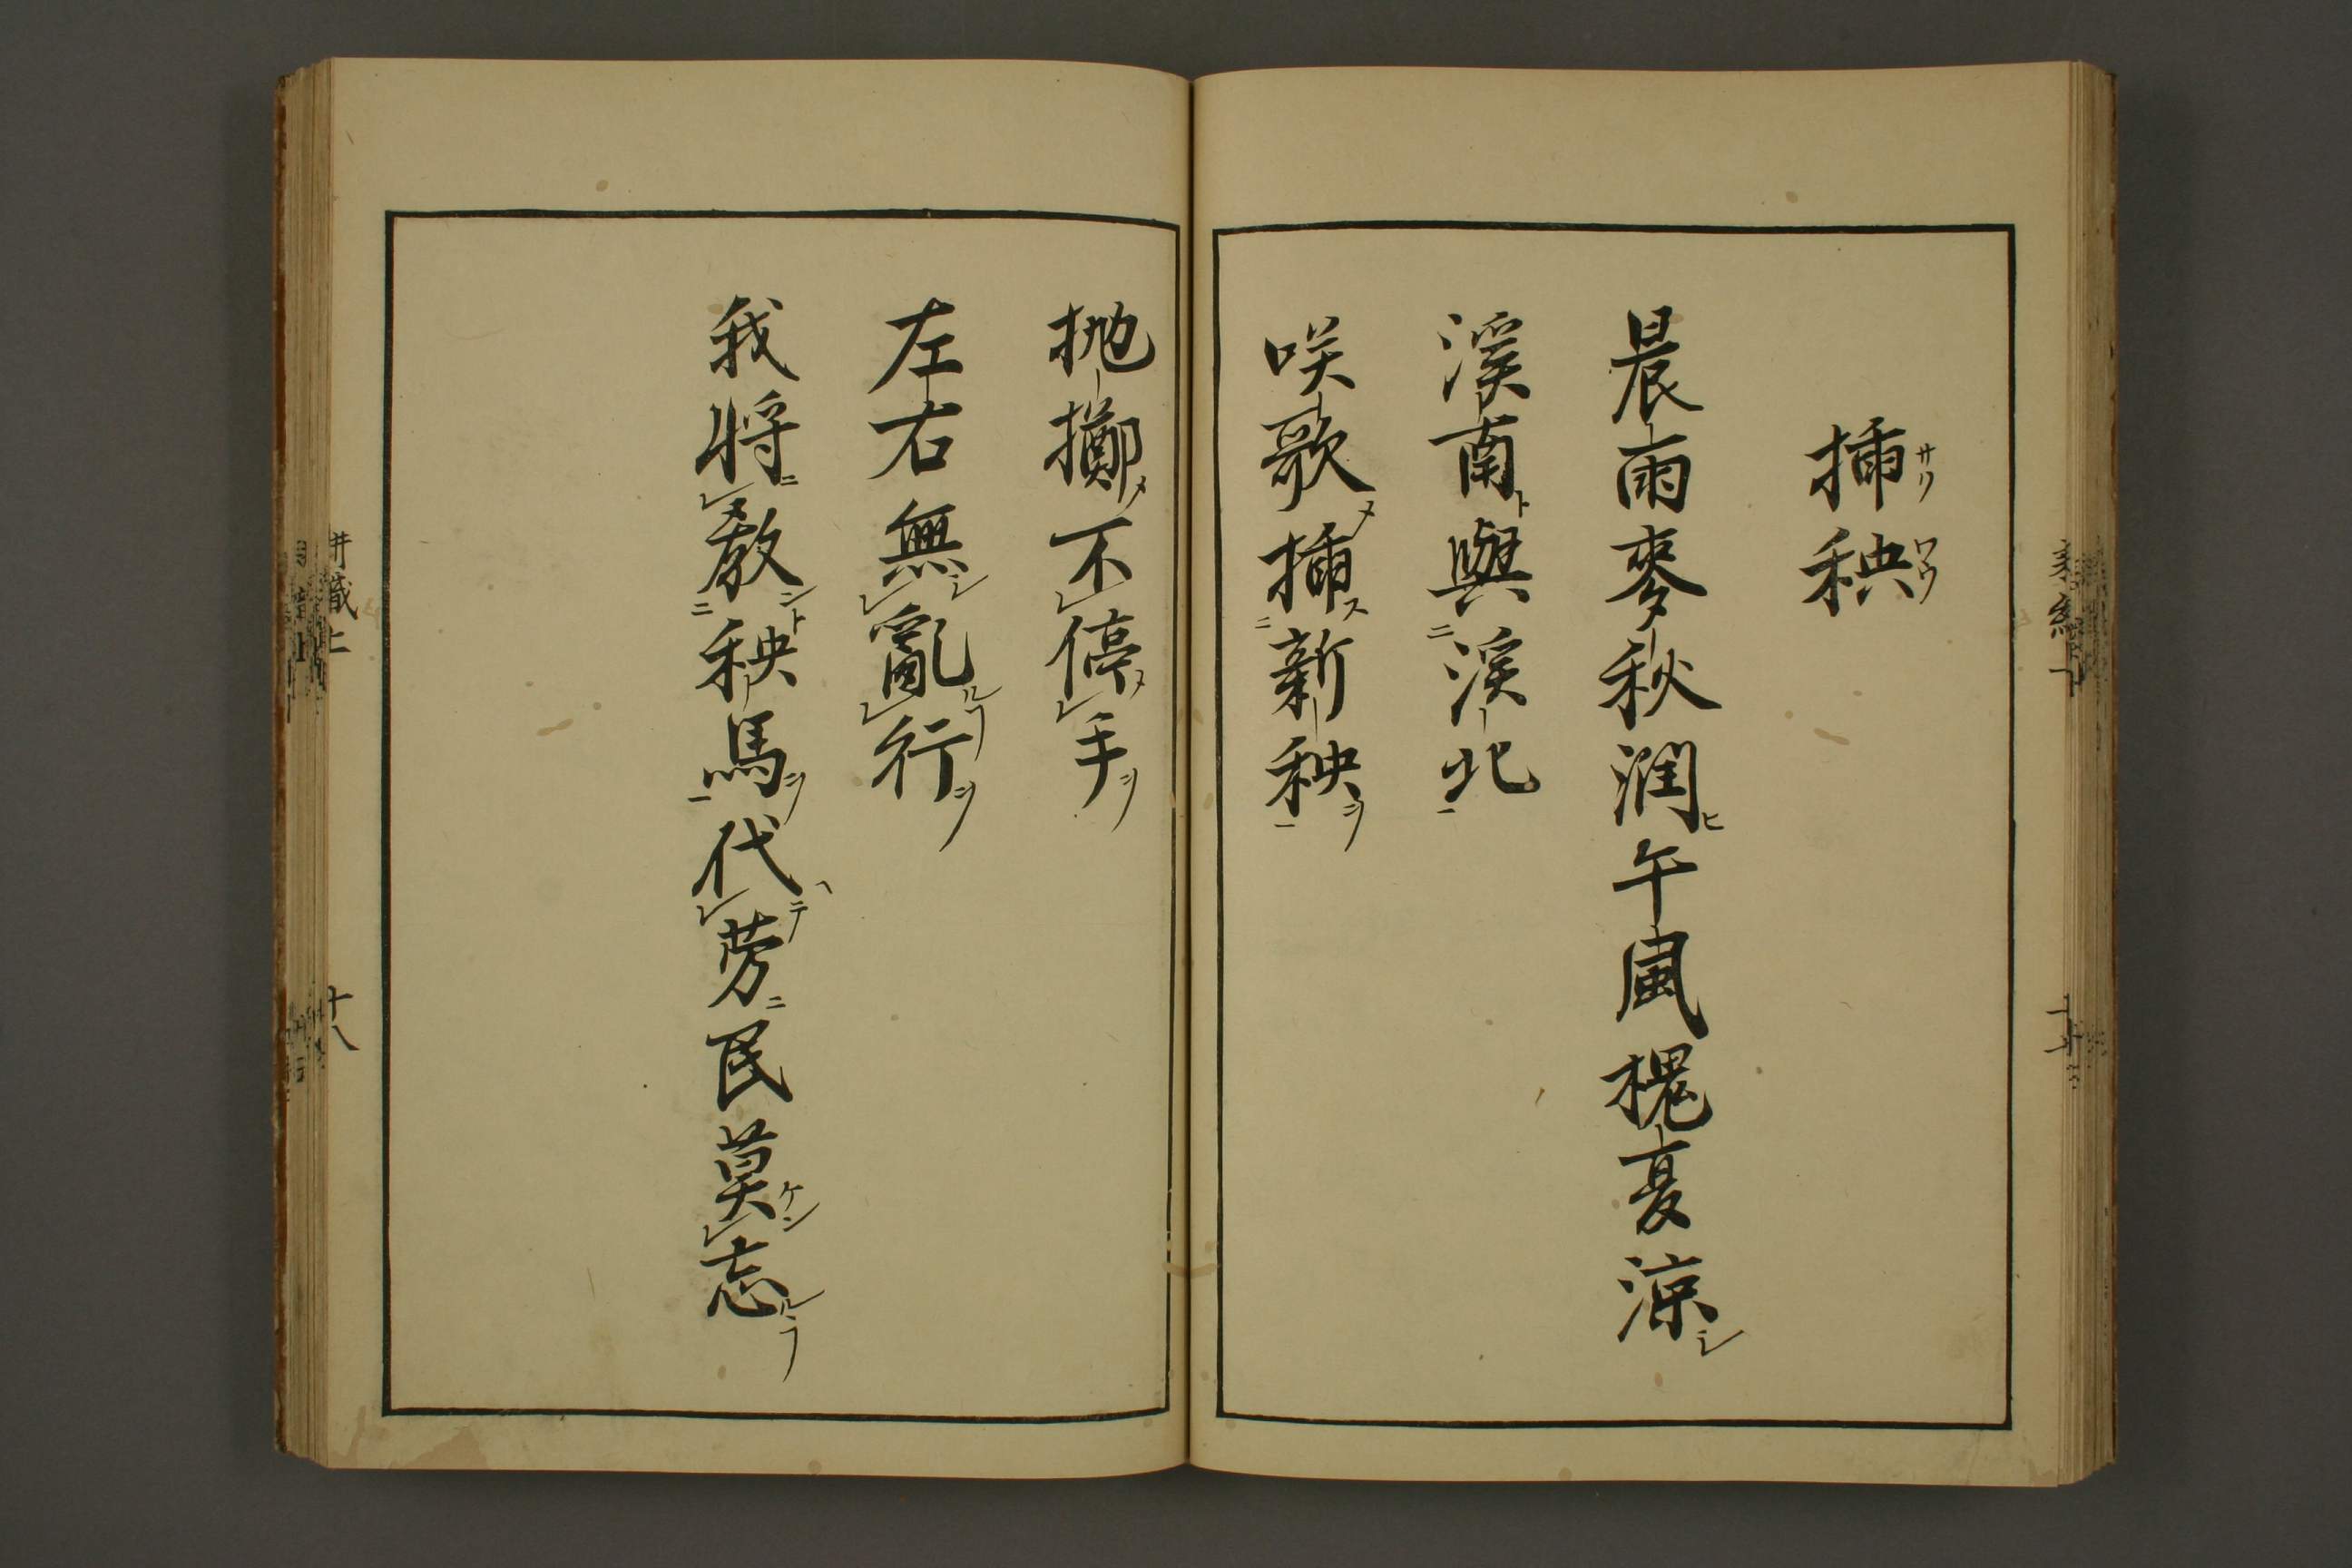 插秧
晨雨麥秋潤午風槐夏涼
溪南與溪北
咲歌插新秧
抛擲不停手
左右無亂行
我将教秧馬代勞民莫忘
十八